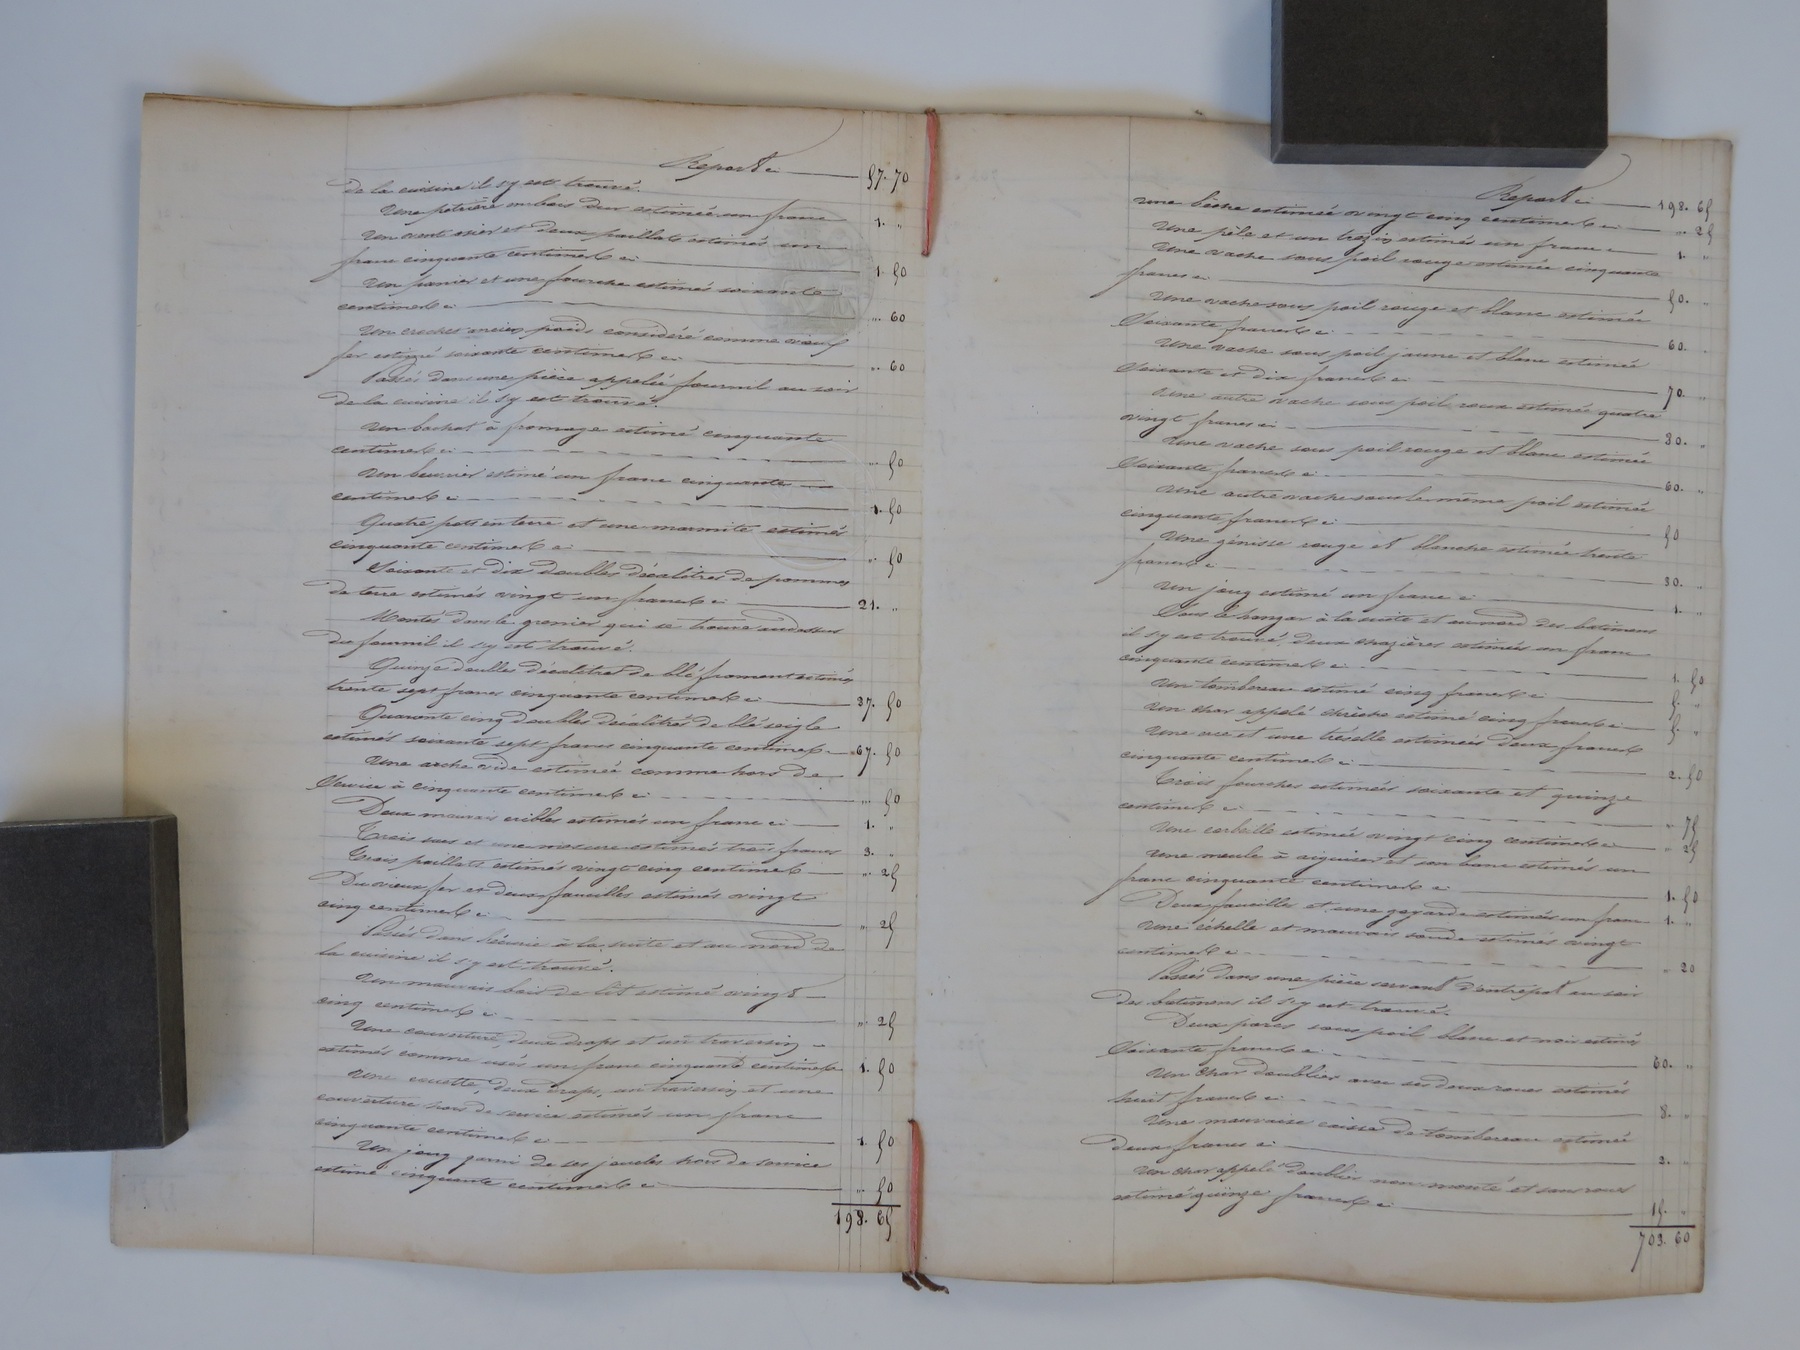 Report ci 57. 70
de la cuisine il s'y est trouvé.
Une petrière en bois dur estimée un franc 1. "
Un vent osier et deux paillats estimés un
franc cinquante centimes ci 1. 50
Un panier et une fourche estimés soixante
centimes ci " 60
Un crochet ancien poids considéré comme vieux
fer estimé soixante centimes ci " 60
Passés dans une pièce appelée fournil au soir
de la cuisine il s'y est trouvé.
Un bachat à fromage estimé cinquante
centimes ci " 50
Un beurrier estimé un franc cinquante
centimes ci 1. 50
Quatre pots en terre et une marmite estimés
cinquante centimes ci " 50
Soixante et dix doubles décalitres de pommes
de terre estimés vingt un francs ci 21. "
Montés dans le grenier qui se trouve au dessus
du fournil il s'y est trouvé.
Quinze doubles décalitres de blé froment estimés
trente sept francs cinquante centimes ci 37. 50
Quarante cinq doubles décalitres de blé seigle
estimés soixante sept francs cinquante centimes 67. 50
Une arche vide estimée comme hors de
service à cinquante centimes ci " 50
Deux mauvais cribles estimés un franc ci 1. "
Trois sacs et une mesure estimés trois francs 3. "
Trois paillats estimés vingt cinq centimes " 25
Du vieux fer et deux faucilles estimés vingt
cinq centimes ci " 25
Passés dans l'écurie à la suite et au nord de
la cuisine il s'y est trouvé.
Un mauvais bois de lit estimé vingt
cinq centimes ci " 25
Une couverture, deux draps et un traversin
estimés comme usés un franc cinquante centimes 1. 50
Une couette, deux draps, un traversin et une
couverture hors de service estimés un franc
cinquante centimes ci 1. 50
Un joug garni de ses jucles hors de service
estimé cinquante centimes ci " 50
198. 65
Report ci 198. 65
Une bêche estimée vingt cinq centimes ci " 25
Une pèle et un estimés un franc 1. "
Une vache sous poil rouge estimée cinquante
francs ci 50. "
Une vache sous poil rouge et blanc estimée
soixante francs ci 60. "
Une vache sous poil jaune et blanc estimée
soixante et dix francs ci 70. "
Une autre vache sous poil roux estimée quatre
vingt francs ci 80. "
Une vache sous poil rouge et blanc estimée
soixante francs ci 60. "
Une autre vache sous le même poil estimée
cinquante francs ci 50
Une génisse rouge et blanche estimée trente
francs ci 30. "
Un joug estimé un franc ci 1. "
Sous l'hangar à la suite et au nord des bâtimens
il s'y est trouvé, deux estimées un franc
cinquante centimes ci 1. 50
Un tombereau estimé cinq francs ci 5. "
Un char appelé estimé cinq francs ci 5. "
Une et une estimées deux francs
cinquante centimes ci 2. 50
Trois fourches estimées soixante et quinze
centimes ci " 75
Une corbeille estimée vingt cinq centimes ci " 25
Une meule à aiguiser et son banc estimés un
franc cinquante centimes ci 1. 50
Deux faucilles et une estimés un franc 1. "
Une échelle et mauvais estimés vingt
centimes ci " 20
Passés dans une pièce servant d'entrepôt au soir
des bâtimens il s'y est trouvé.
Deux porcs sous poil blanc et noir estimés
soixante francs ci 60. "
Un char doublier avec ses deux roues estimés
huit francs ci 8. "
Une mauvaise caisse de tombereau estimée
deux francs ci 2. "
Un char appelé doublier non monté et sans roues
estimé quinze francs ci 15. "
703. 60